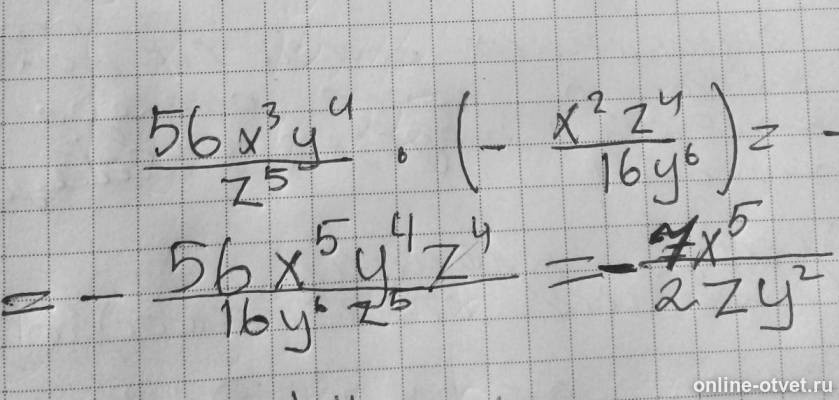 56x³y⁴/z⁵ · (- x²z⁴/16y⁶) = -
= - 56x⁵y⁴z⁴/16y⁶z⁵ = - 7x⁵/2zy²
online-otvet.ru